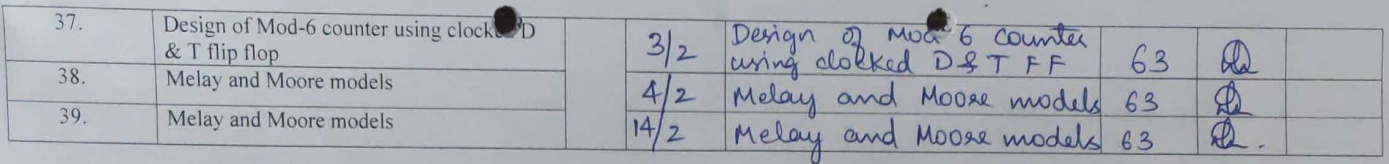 37. Design of Mod-6 counter using clocked D 3/2 Design of Mod 6 counter
& T flip flop using clokked D & T FF 63
38. Melay and Moore models 4/2 Melay and Moore models 63
39. Melay and Moore models 14/2 Melay and Moore models 63